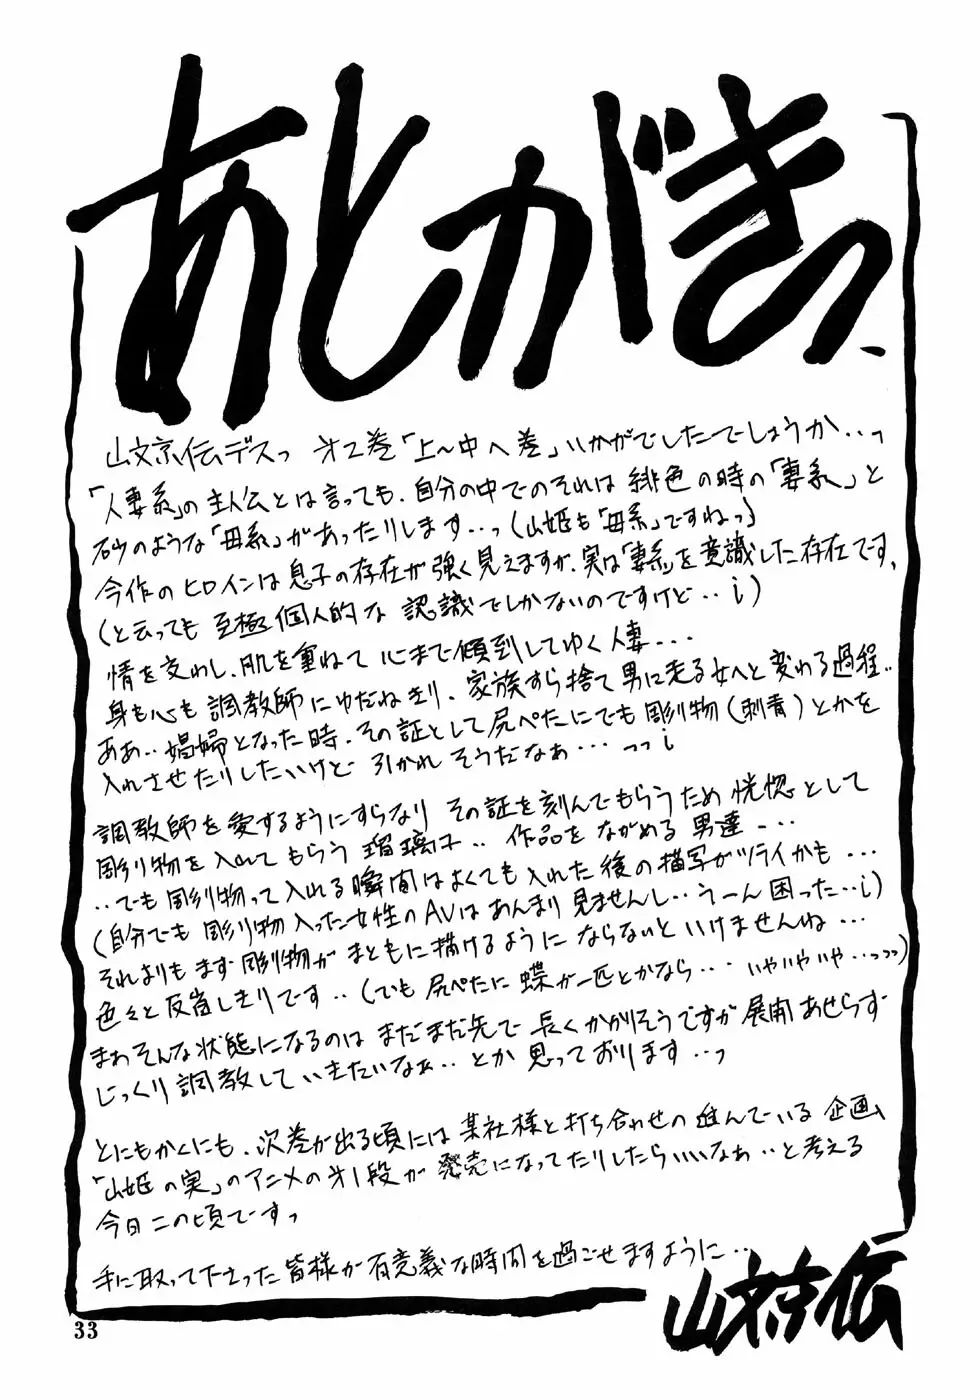 あとがきっ
山文京伝デスっ 才2巻「上~中へ巻」いかがでしたでしょうか‥っ
「人妻系」の主人公とは言っても、自分の中でのそれは 緋色の時の「妻系」と
砂のような「母系」があったりします‥っ(山姫も「母系」ですねっ)
今作のヒロインは息子の存在が強く見えますが、実は「妻系」を意識した存在です、
(と云っても 至極個人的な 認識でしかないのですけど‥i)
情を交わし、肌を重ねて 心まで傾倒してゆく人妻‥‥
身も心も調教師にゆだねきり、家族すら捨て男に走る女へと変わる過程‥
ああ‥娼婦となった時、その証として尻ぺたにでも彫り物(刺青)とかを
入れさせたりしたいけど 引かれそうだなぁ‥‥っっi
調教師を愛するようにすらなり その証を刻んでもらうため 恍惚として
彫り物を入れてもらう 瑠璃子‥ 作品を ながめる 男達‥‥
‥でも彫り物って入れる瞬間はよくても入れた後の描写がツライかも‥‥
(自分でも 彫り物入った女性のAVはあんまり見ませんし‥う~ん困った‥i)
それよりもまず彫り物が まともに描けるように ならないといけませんね‥‥
色々と反省しきりです‥(でも尻ぺたに 蝶が一匹とかなら‥‥いやいやいや‥っっっ)
まぁそんな状態になるのは まだまだ先で 長くかかりそうですが展開あせらず
じっくり調教していきたいなぁ‥とか 思っております‥っ
とにもかくにも、次巻が出る頃には 某社様と打ち合わせの進んでいる 企画
「山姫の実」のアニメの才1段が 発売になってたりしたらいいなぁ‥と考える
今日この頃ですっ
手に取って下さった皆様が有意義な時間を過ごせますように‥
山文京伝
33